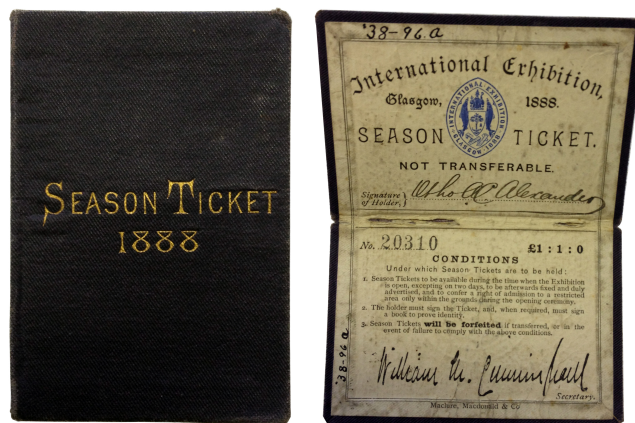 SEASON TICKET
1888
'38-96.a
International Exhibition,
Glasgow, 1888.
INTERNATIONAL EXHIBITION
GLASGOW 1888
SEASON TICKET.
NOT TRANSFERABLE.
Signature
of Holder,
Alexander
No. 20310 £1:1:0
CONDITIONS
Under which Season Tickets are to be held:
1. Season Tickets to be available during the time when the Exhibition
is open, excepting on two days, to be afterwards fixed and duly
advertised, and to confer a right of admission to a restricted
area only within the grounds during the opening ceremony.
2. The holder must sign the Ticket, and, when required, must sign
a book to prove identity.
3. Season Tickets will be forfeited if transferred, or in the
event of failure to comply with the above conditions.
'38-96.a
William M. Cunninghame
Secretary.
Maclure, Macdonald & Co